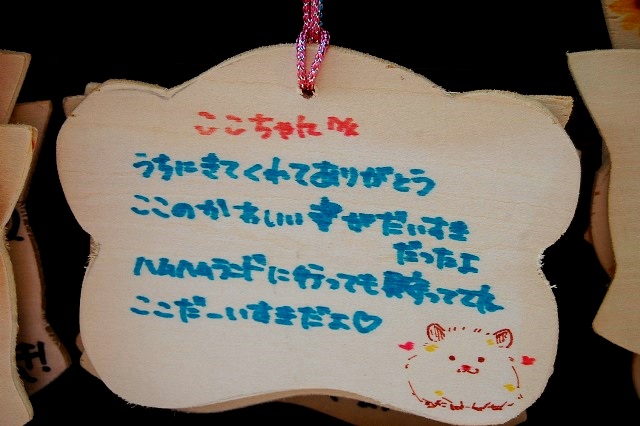 ここちゃんへ
うちにきてくれてありがとう
ここのかわいい がだいすき
だったよ
ハムハムランドに行っても見守っててね
ここだーいすきだよ♡